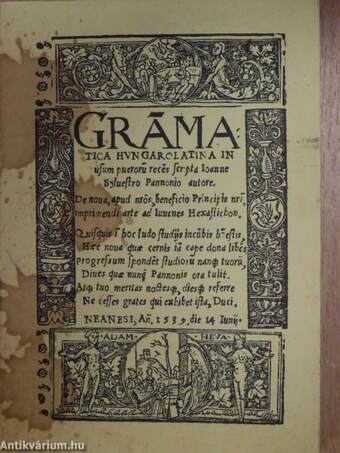 GRĀMA
TICA HVNGAROLATINA IN
usum puerorū recēs scripta Ioanne
Syluestro Pannonio autore.
De noua, apud nr̄os, beneficio Principis nr̄i
imprimendi arte ad Iuuenes Hexastichon.
Quisquis ī hoc ludo studijs incūbis hōestis,
Haec noua quae cernis iā cape dona libēs
progressum spondēt studiorū nanque tuorū,
Diues quae nunq̄ Pannonis ora tulit.
Atque tuo meritas noctesque, diesque referre
Ne cesses grates qui exhibet ista, Duci.
NEANESI, An̄. 1539, die 14 Iunij.
ADAM HEVA
Antikvárium.hu